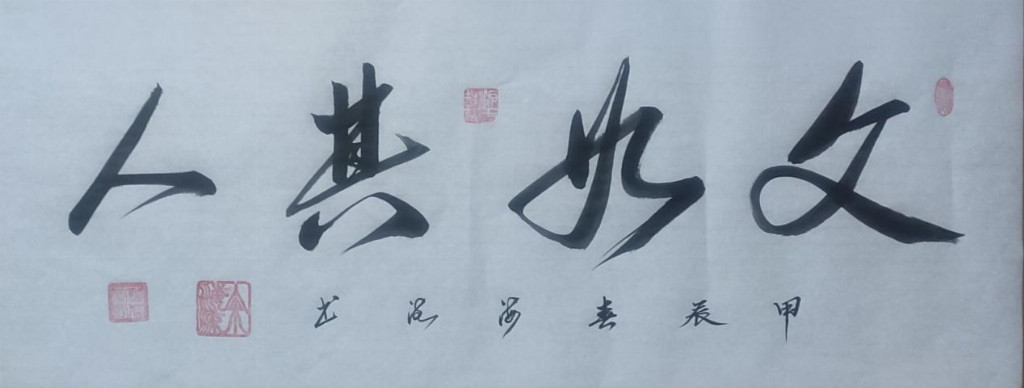 文如其人
甲辰春海波书